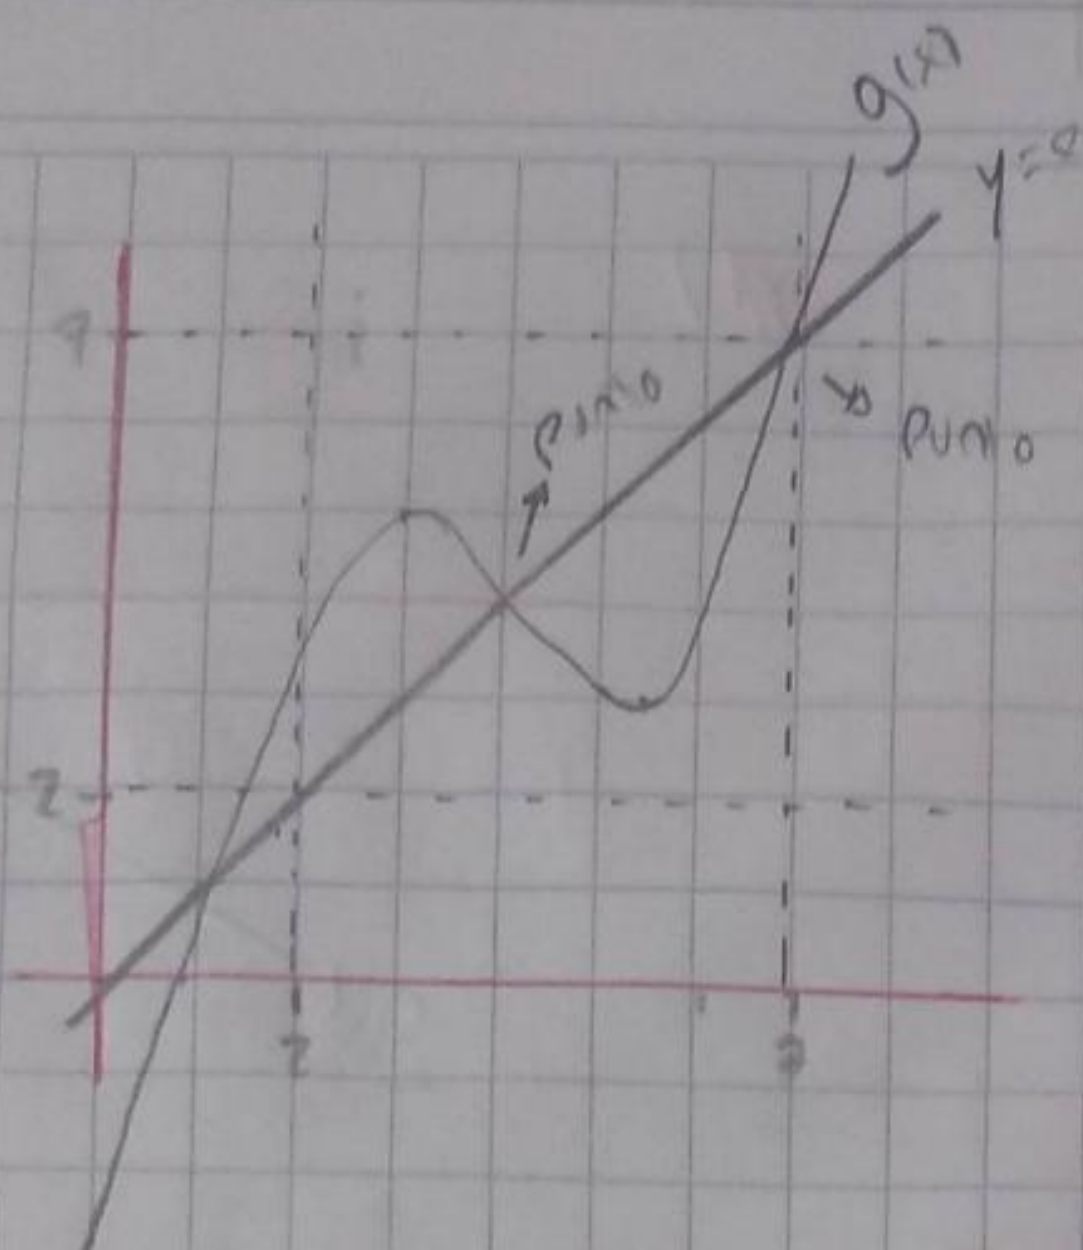 g(x)
y=
Punto
Punto
2
2